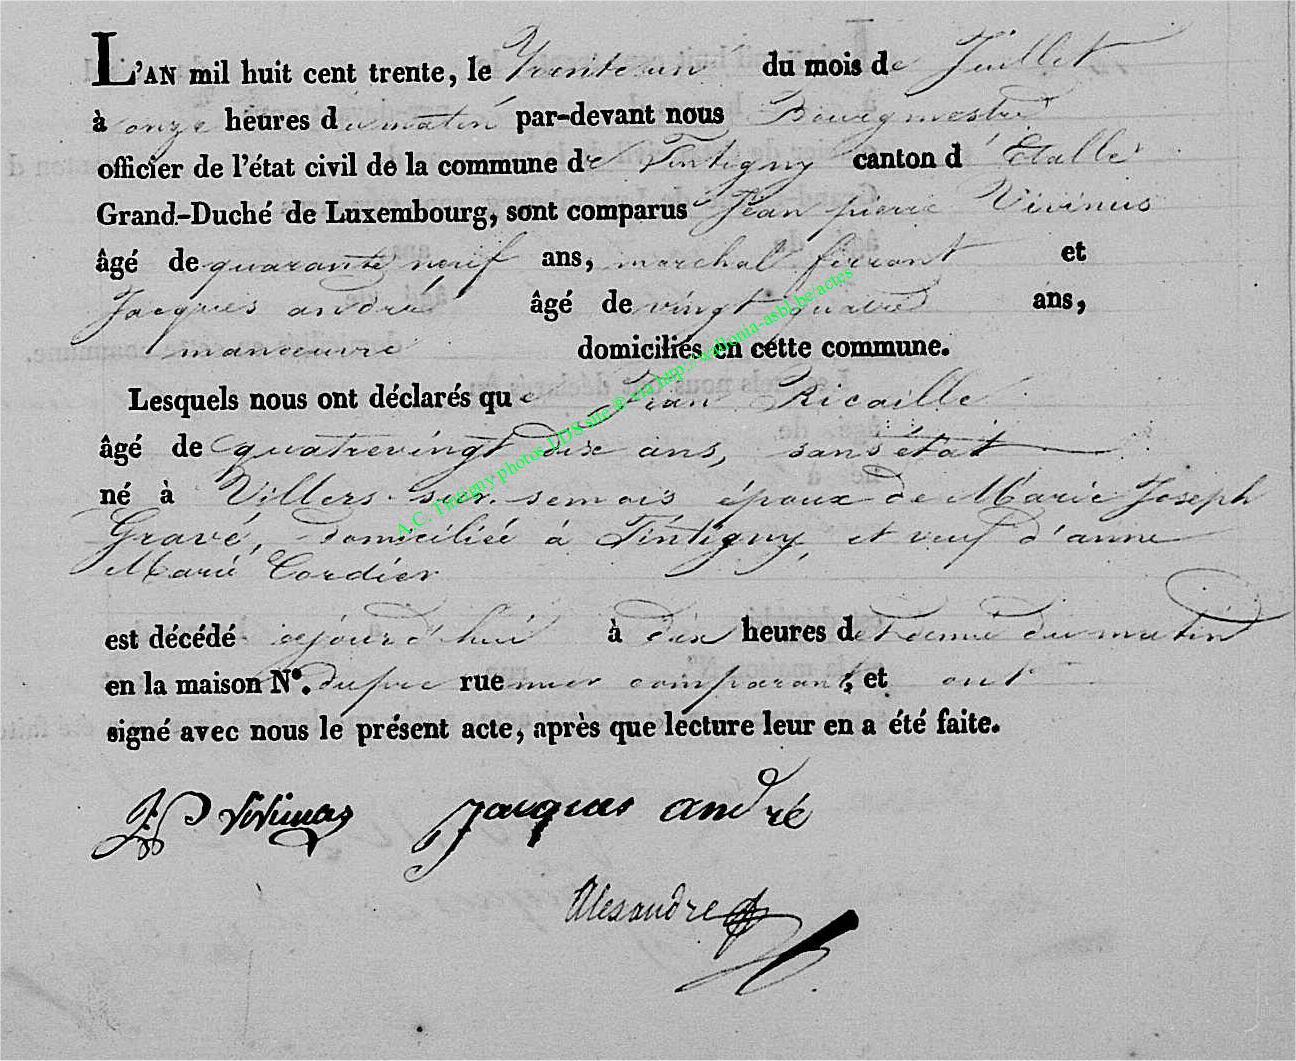 L'AN mil huit cent trente, le Trente un du mois de Juillet
à onze heures du matin par-devant nous Bourgmestre
officier de l'état civil de la commune de Tintigny canton d'Etalle
Grand-Duché de Luxembourg, sont comparus Jean pierre Vivinus
âgé de quarante neuf ans, marechal ferrant et
Jacques andré âgé de vingt quatre ans,
manœuvre domiciliés en cette commune.
Lesquels nous ont déclarés que Jean Ricaille
âgé de quatrevingt dix ans, sans état
né à Villers-sur semois époux de Marie Joseph
Gravé, domiciliée à Tintigny, et veuf d'anne
Marie Cordier
est décédé aujourd'hui à dix heures et demie du matin
en la maison N°. du pre rue mier comparant, et ont
signé avec nous le présent acte, après que lecture leur en a été faite.
JP Vivinus Jacques andré
Alexandre
A.C. Tintigny photos LDS site @ cta http://wallonia-asbl.be/actes